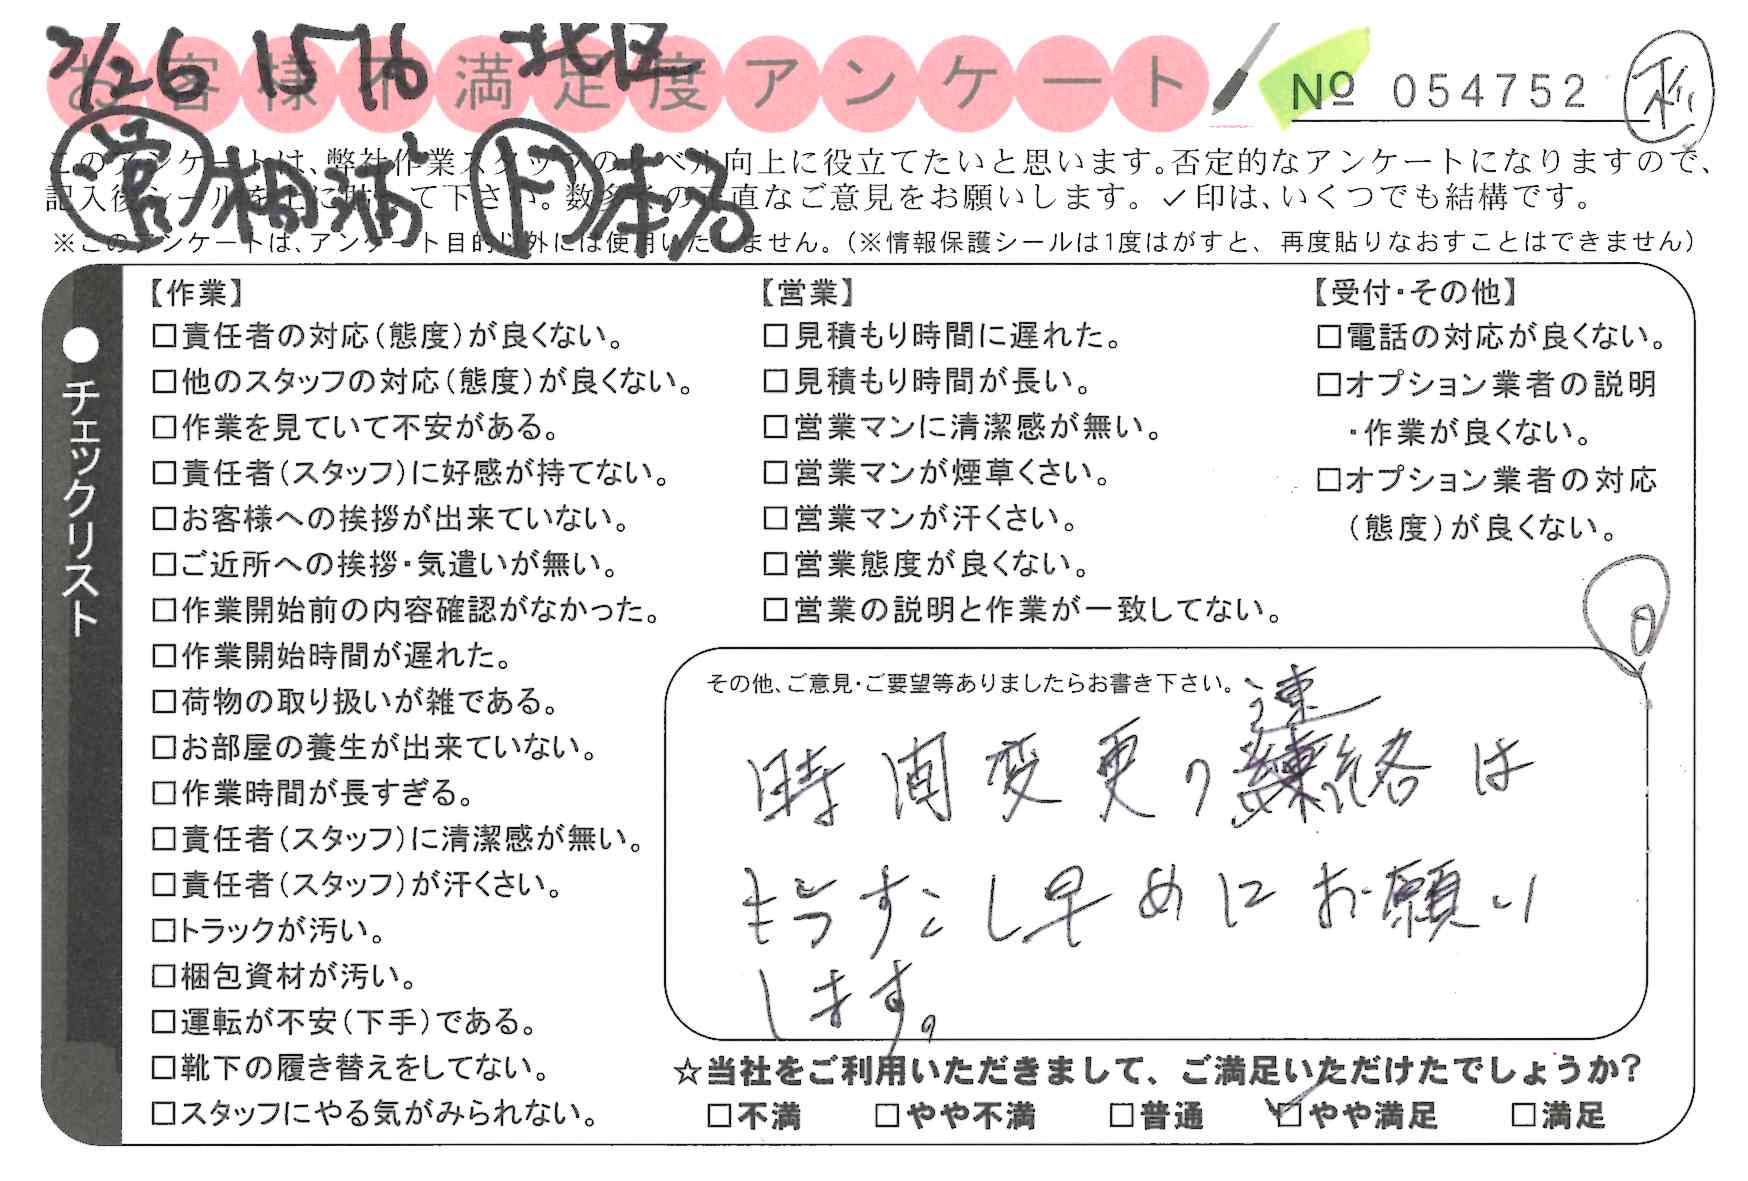 7/26 1576 北区
お客様不満足度アンケート
№ 054752
杉
営 相浦 ド 本多
このアンケートは、弊社作業スタッフのレベル向上に役立てたいと思います。否定的なアンケートになりますので、
記入後シールを上に貼って下さい。数多くの正直なご意見をお願いします。✓印は、いくつでも結構です。
※このアンケートは、アンケート目的以外には使用いたしません。(※情報保護シールは1度はがすと、再度貼りなおすことはできません)
●チェックリスト
【作業】
□責任者の対応(態度)が良くない。
□他のスタッフの対応(態度)が良くない。
□作業を見ていて不安がある。
□責任者(スタッフ)に好感が持てない。
□お客様への挨拶が出来ていない。
□ご近所への挨拶・気遣いが無い。
□作業開始前の内容確認がなかった。
□作業開始時間が遅れた。
□荷物の取り扱いが雑である。
□お部屋の養生が出来ていない。
□作業時間が長すぎる。
□責任者(スタッフ)に清潔感が無い。
□責任者(スタッフ)が汗くさい。
□トラックが汚い。
□梱包資材が汚い。
□運転が不安(下手)である。
□靴下の履き替えをしてない。
□スタッフにやる気がみられない。
【営業】
□見積もり時間に遅れた。
□見積もり時間が長い。
□営業マンに清潔感が無い。
□営業マンが煙草くさい。
□営業マンが汗くさい。
□営業態度が良くない。
□営業の説明と作業が一致してない。
【受付・その他】
□電話の対応が良くない。
□オプション業者の説明
・作業が良くない。
□オプション業者の対応
(態度)が良くない。
その他、ご意見・ご要望等ありましたらお書き下さい。
時間変更の連絡は
もうすこし早めにお願い
します。
☆当社をご利用いただきまして、ご満足いただけたでしょうか?
□不満 □やや不満 □普通 ☑やや満足 □満足